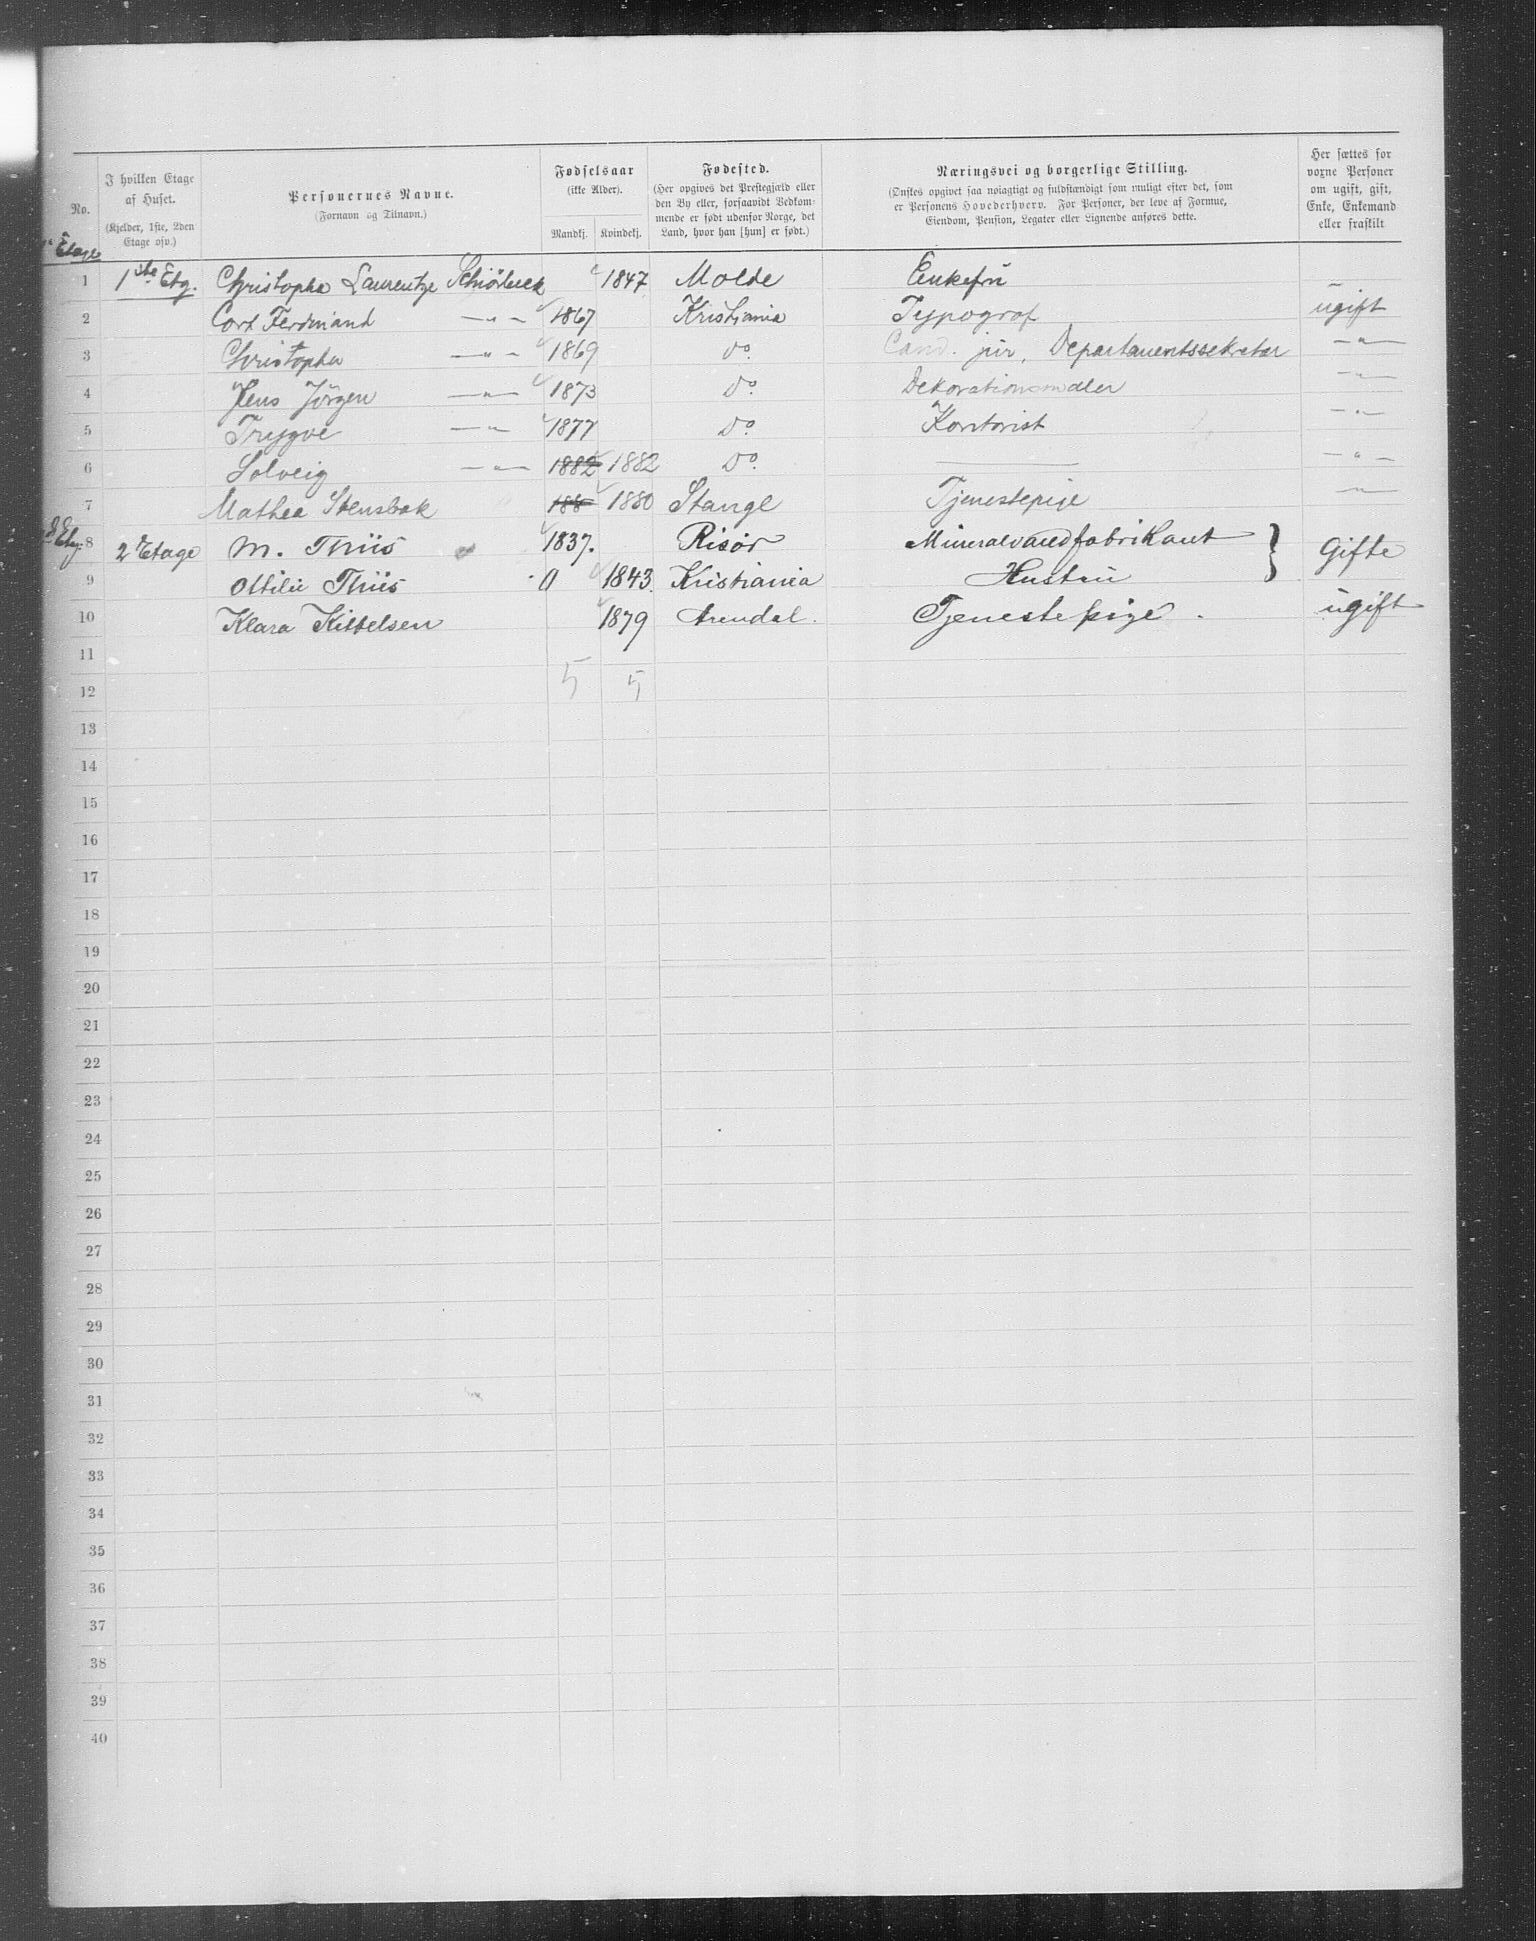 No.
I hvilken Etage af Huset.
(Kjelder, 1ste, 2den Etage osv.)
Personernes Navne.
(Fornavn og Tilnavn.)
Fødselsaar
(ikke Alder).
Mandkj. Kvindekj.
Fødested.
(Her opgives det Prestegjæld eller den By eller, forsaavidt Vedkommende er født udenfor Norge, det Land, hvor han [hun] er født.)
Næringsvei og borgerlige Stilling.
(Ønskes opgivet saa nøiagtigt og fuldstændigt som muligt efter det, som er Personens Hovederhverv. For Personer, der leve af Formue, Eiendom, Pension, Legater eller Lignende anføres dette.
Her sættes for voxne Personer om ugift, gift, Enke, Enkemand eller fraskilt
Etage
1 1ste Etg. Christopha Laurentze Schiörbeck 1847 Molde Enkefrü
2 Cort Ferdinand —"— 1867 Kristiania Typograf ugift
3 Christopher —"— 1869 do. Cand. jur, Departementssekretær —"—
4 Jens Jörgen —"— 1873 do. Dekorationsmaler —"—
5 Trygve —"— 1877 do. Kontorist —"—
6 Solveig —"— 1882 1882 do. —— —"—
7 Mathea Stensbak 188 1880 Stange Tjenestepige —"—
Etg. 8 2 Etage M. Thiis 1837. Risör Mineralvandfabrikant } Gifte
9 Ottilie Thiis 0 1843. Kristiania Hustrü
10 Klara Kittelsen 1879 Arendal. Tjenestepige. ugift
11
5 5
12
13
14
15
16
17
18
19
20
21
22
23
24
25
26
27
28
29
30
31
32
33
34
35
36
37
38
39
40